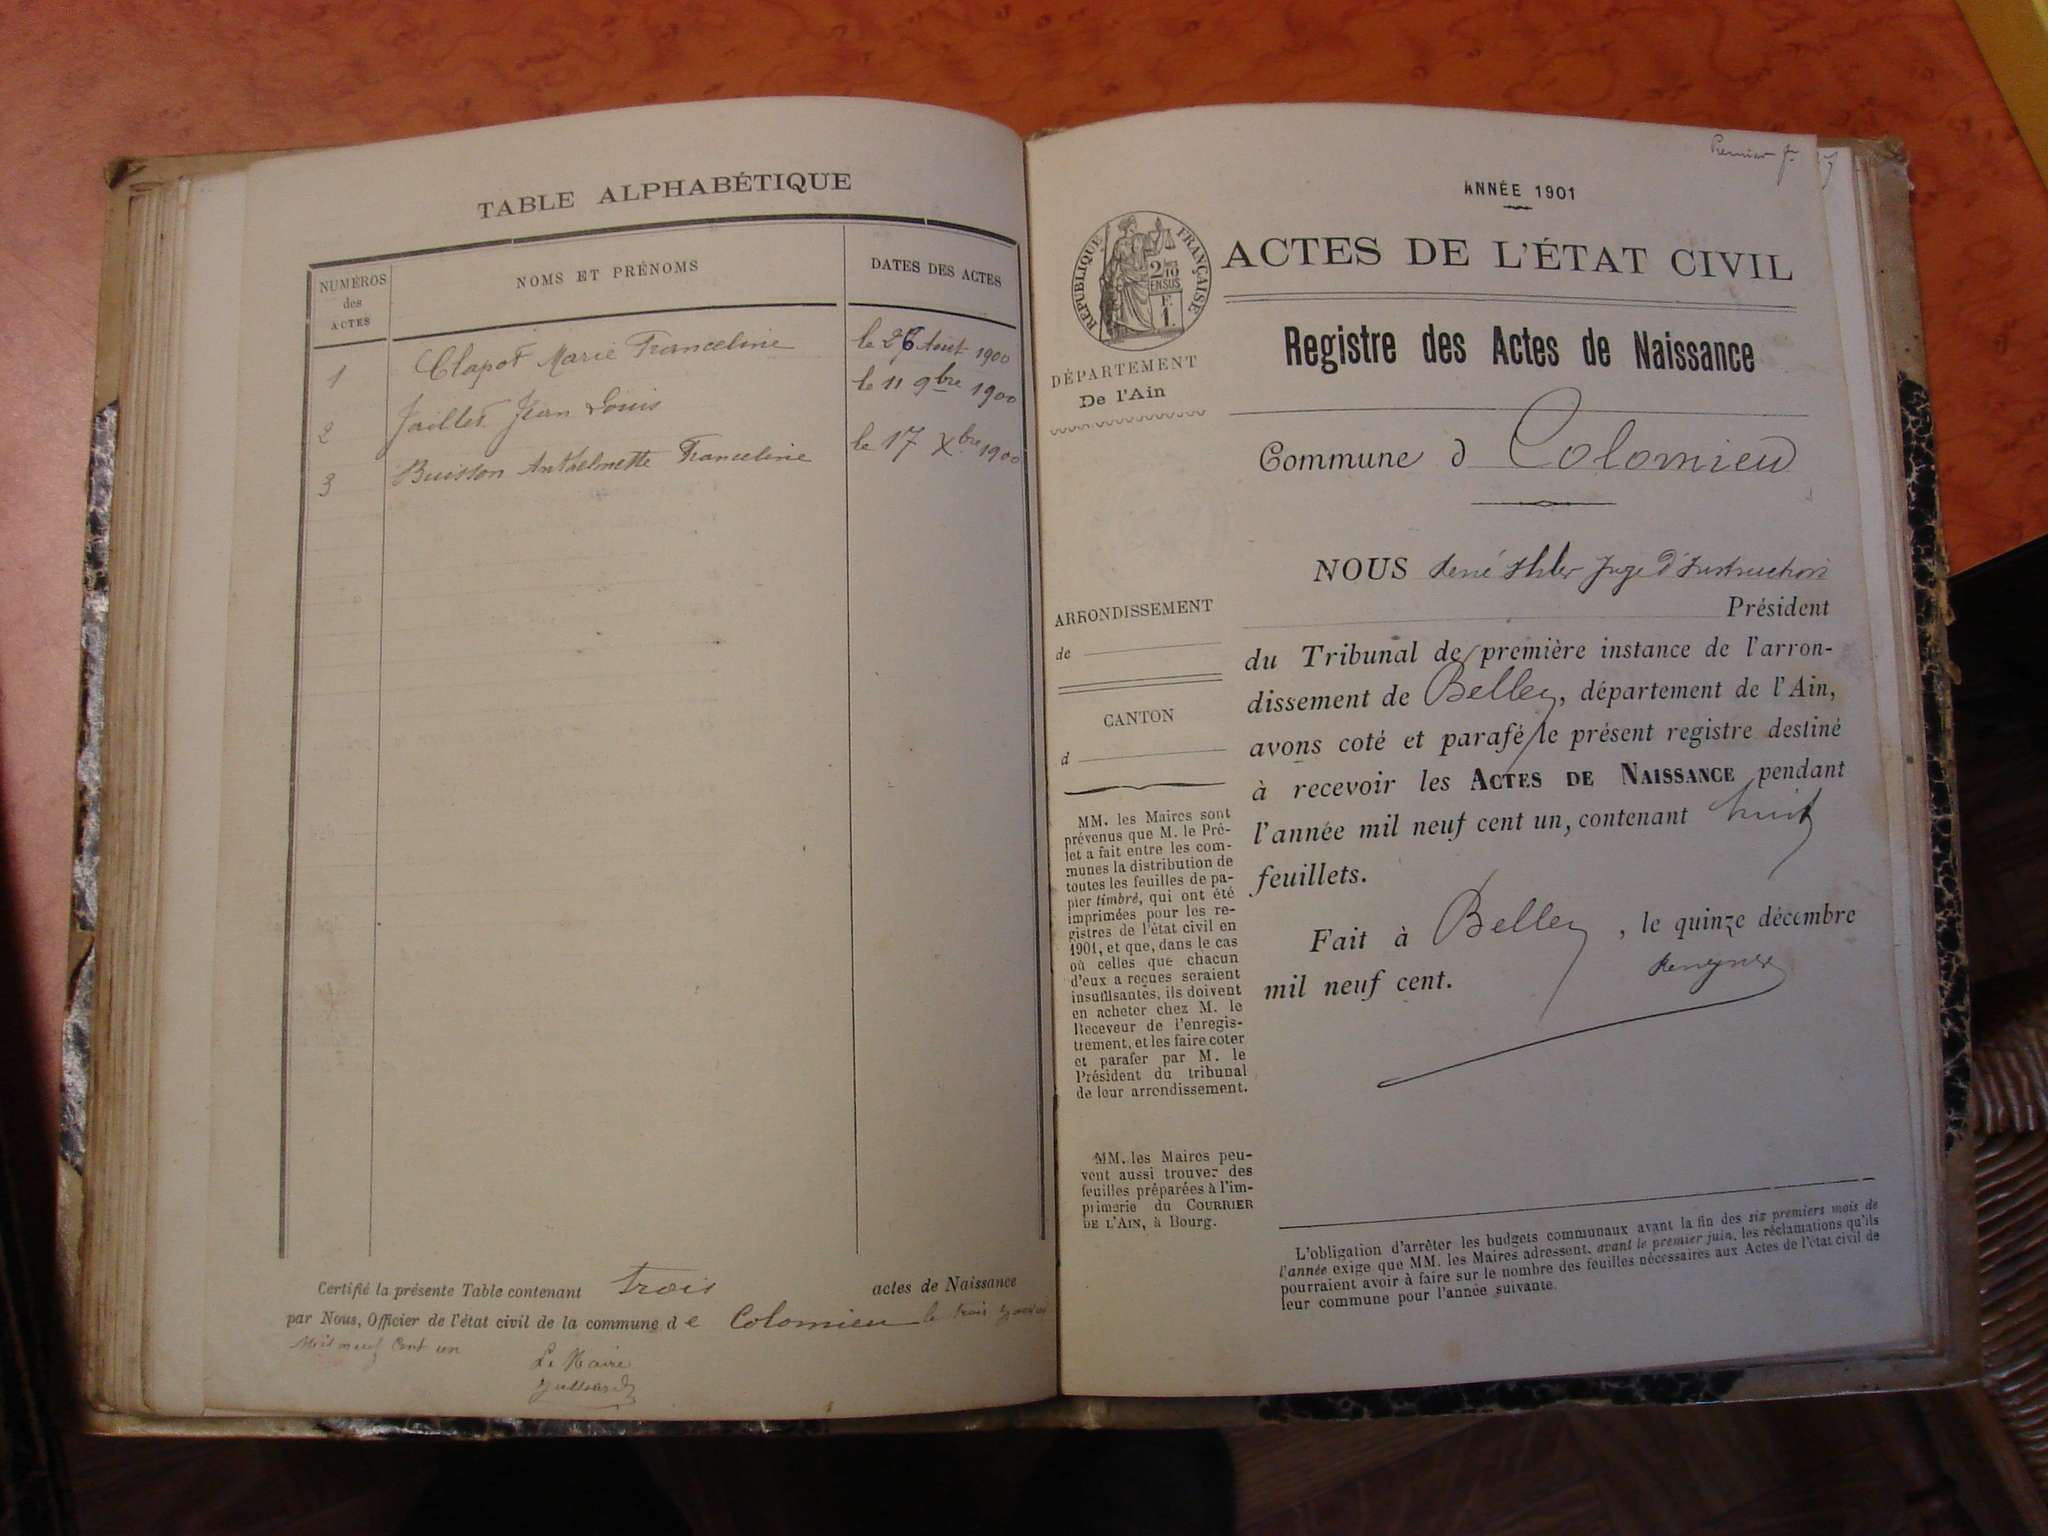 TABLE ALPHABÉTIQUE
NUMÉROS des ACTES
NOMS ET PRÉNOMS
DATES DES ACTES
1 Clapot Marie Franceline le 26 Aout 1900
2 Jaillet Jean Louis le 11 9bre 1900
3 Buisson Anthelmette Franceline le 17 Xbre 1900
Certifié la présente Table contenant trois actes de Naissance
par Nous, Officier de l'état civil de la commune de Colomieu le trois
Mil neuf Cent un
Le Maire
Premier f.
ANNÉE 1901
RÉPUBLIQUE FRANÇAISE
2/10
EN SUS
F.
1.
ACTES DE L'ÉTAT CIVIL
DÉPARTEMENT
De l'Ain
Registre des Actes de Naissance
Commune d Colomieu
NOUS René Juge d'Instruction
Président
du Tribunal de première instance de l'arron-
dissement de Belley, département de l'Ain,
avons coté et parafé le présent registre destiné
à recevoir les ACTES DE NAISSANCE pendant
l'année mil neuf cent un, contenant huit
feuillets.
Fait à Belley, le quinze décembre
mil neuf cent.
ARRONDISSEMENT
de
CANTON
d
MM. les Maires sont
prévenus que M. le Pré-
fet a fait entre les com-
munes la distribution de
toutes les feuilles de pa-
pier timbré, qui ont été
imprimées pour les re-
gistres de l'état civil en
1901, et que, dans le cas
où celles que chacun
d'eux a reçues seraient
insuffisantes, ils doivent
en acheter chez M. le
Receveur de l'enregis-
trement, et les faire coter
et parafer par M. le
Président du tribunal
de leur arrondissement.
MM. les Maires peu-
vent aussi trouver des
feuilles préparées à l'im-
primerie du COURRIER
DE L'AIN, à Bourg.
L'obligation d'arrêter les budgets communaux avant la fin des six premiers mois de
l'année exige que MM. les Maires adressent, avant le premier juin, les réclamations qu'ils
pourraient avoir à faire sur le nombre des feuilles nécessaires aux Actes de l'état civil de
leur commune pour l'année suivante.